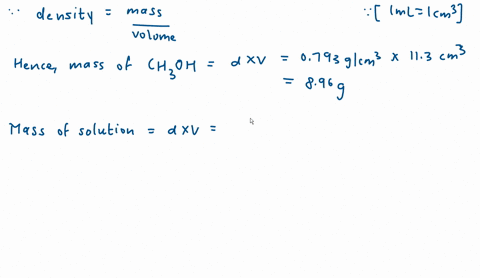 ∵ density = mass / volume ∵ [ 1mL = 1cm³ ]
Hence, mass of CH₃OH = d × V = 0.793 g/cm³ × 11.3 cm³
= 8.96 g
Mass of solution = d × V =